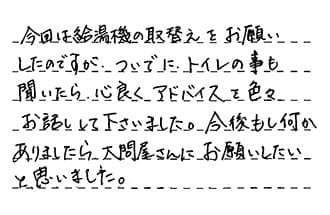 今回は給湯機の取替えをお願い
したのですが、ついでに、トイレの事も
聞いたら、心良くアドバイスを色々
お話しして下さいました。今後もし何か
ありましたら大問屋さんにお願いしたい
と思いました。